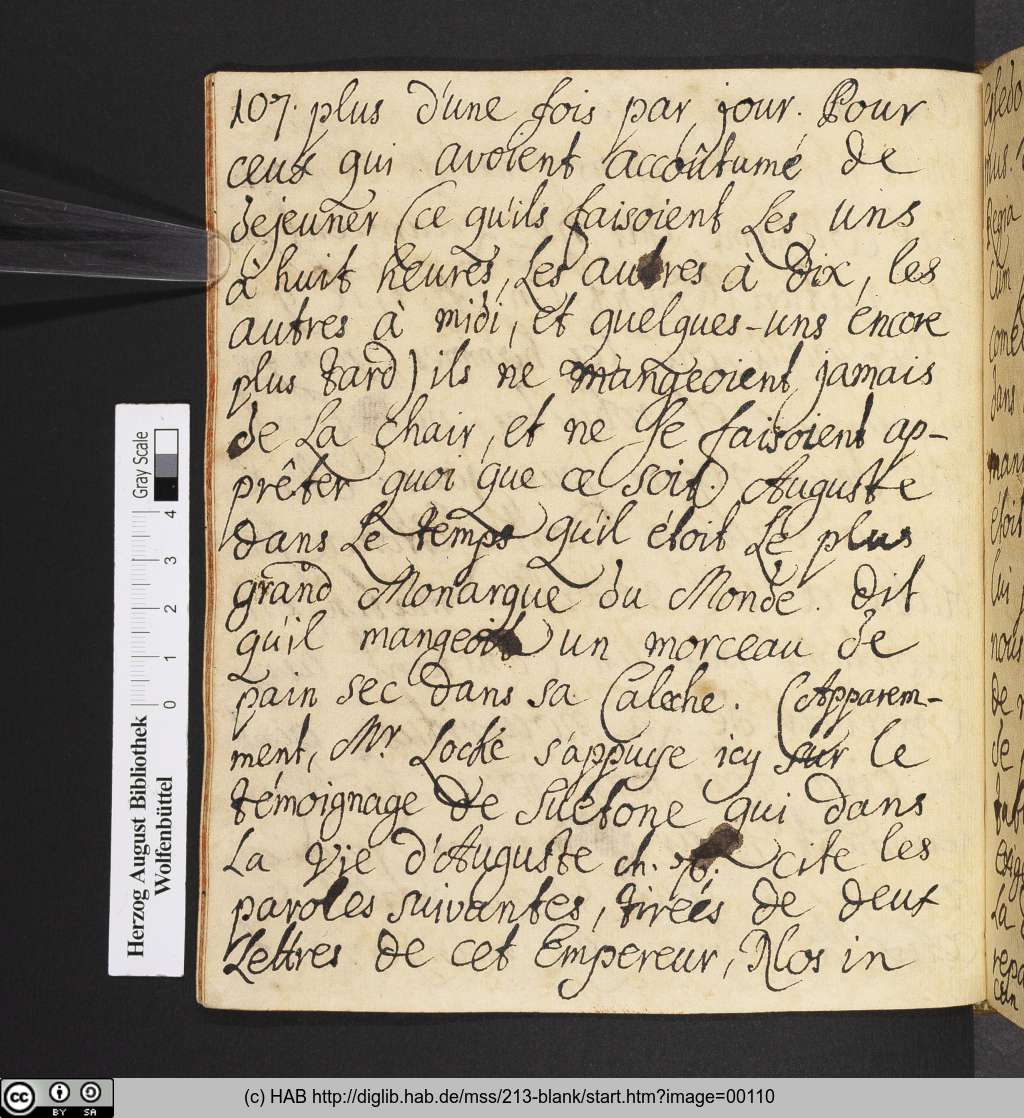 107. plus d'une fois par jour. Pour
ceux qui avoient accoûtumé de
dejeuner (ce qu'ils faisoient Les uns
à huit heures, Les autres à Dix, les
autres à midi, et quelques-uns encore
plus tard) ils ne mangeoient jamais
de La chair, et ne se faisoient ap-
prêter quoi que ce soit) Auguste
dans Le temps qu'il étoit Le plus
grand Monarque du Monde. Dit
qu'il mangeoit un morceau de
pain sec dans sa Caleche. (Apparem-
ment, Mr Locke s'appuye icy sur le
témoignage de Suétone qui dans
La Vie d'Auguste ch. 76. cite les
paroles suivantes, tirées de deux
Lettres de cet Empereur, Nos in
Herzog August Bibliothek
Wolfenbüttel
Gray Scale
0 1 2 3 4
cc BY SA
(c) HAB http://diglib.hab.de/mss/213-blank/start.htm?image=00110